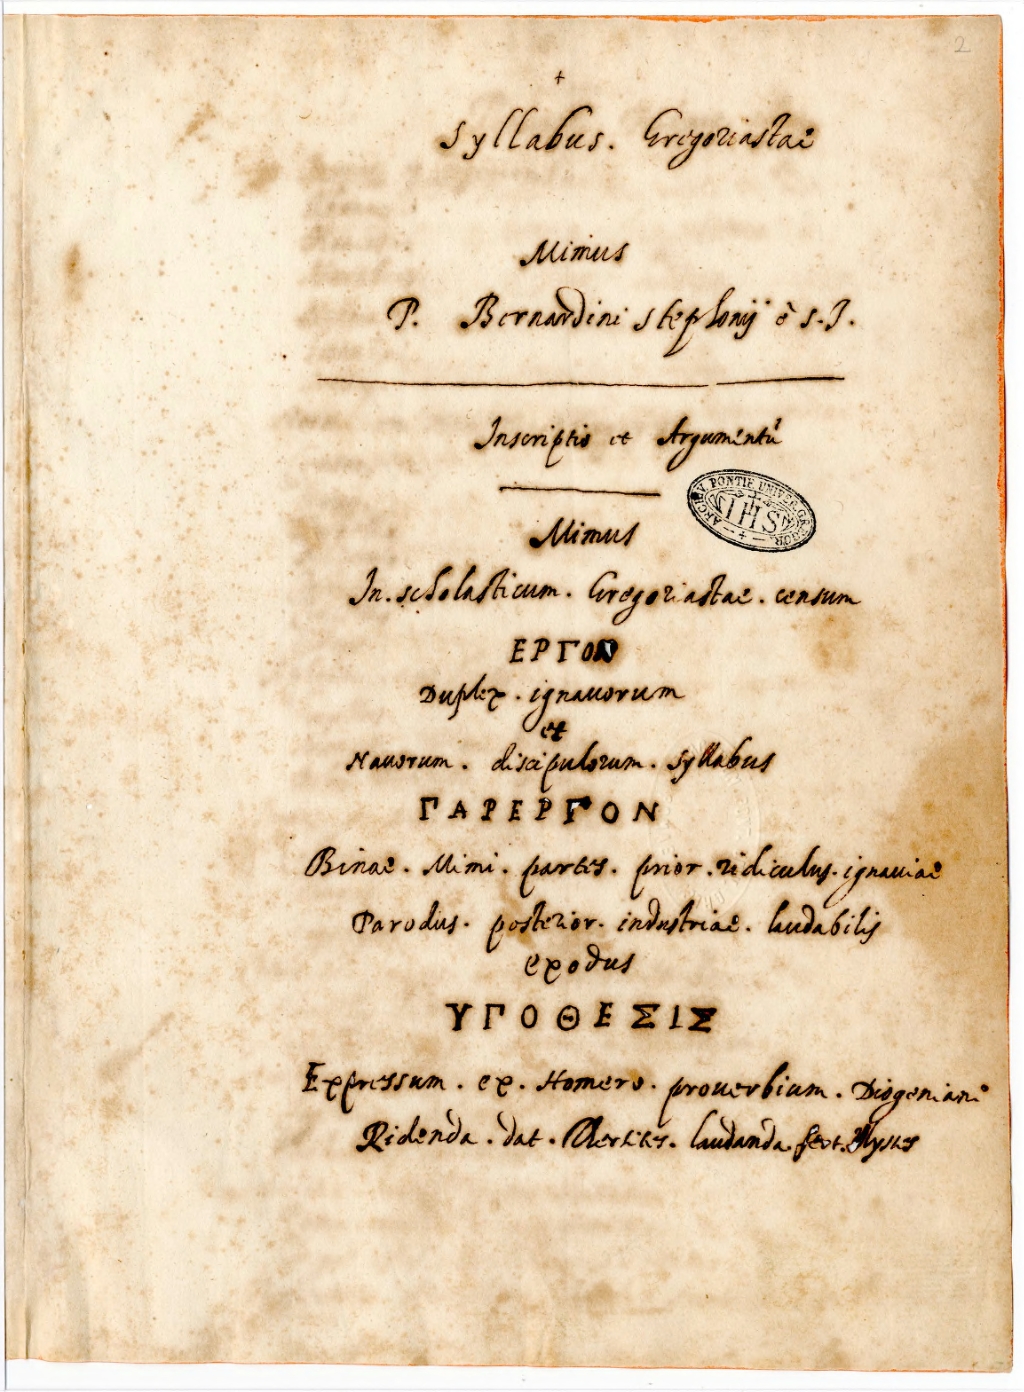 2
+
Syllabus. Gregoriastae
Mimus
P. Bernardini Stephonij è S.J.
Inscriptio et Argumentū
ARCHIV. PONTIF. UNIVER. GREGOR.
IHS
Mimus
In. scholasticum. Gregoriastae. censum
ΕΡΓΟΝ
Duplex. ignavorum
et
Navorum. discipulorum. syllabus
ΓΑΡΕΡΓΟΝ
Binae. Mimi. partes. prior. ridiculus. ignaviae
Parodus. posterior. industriae. laudabilis
exodus
ΥΓΟΘΕΣΙΣ
Expressum. ex. Homero. proverbium. Diogeniani
Ridenda. dat. laudanda.